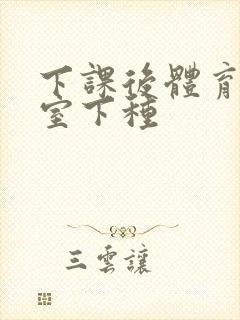 下課後體育
室下種
三雲讓